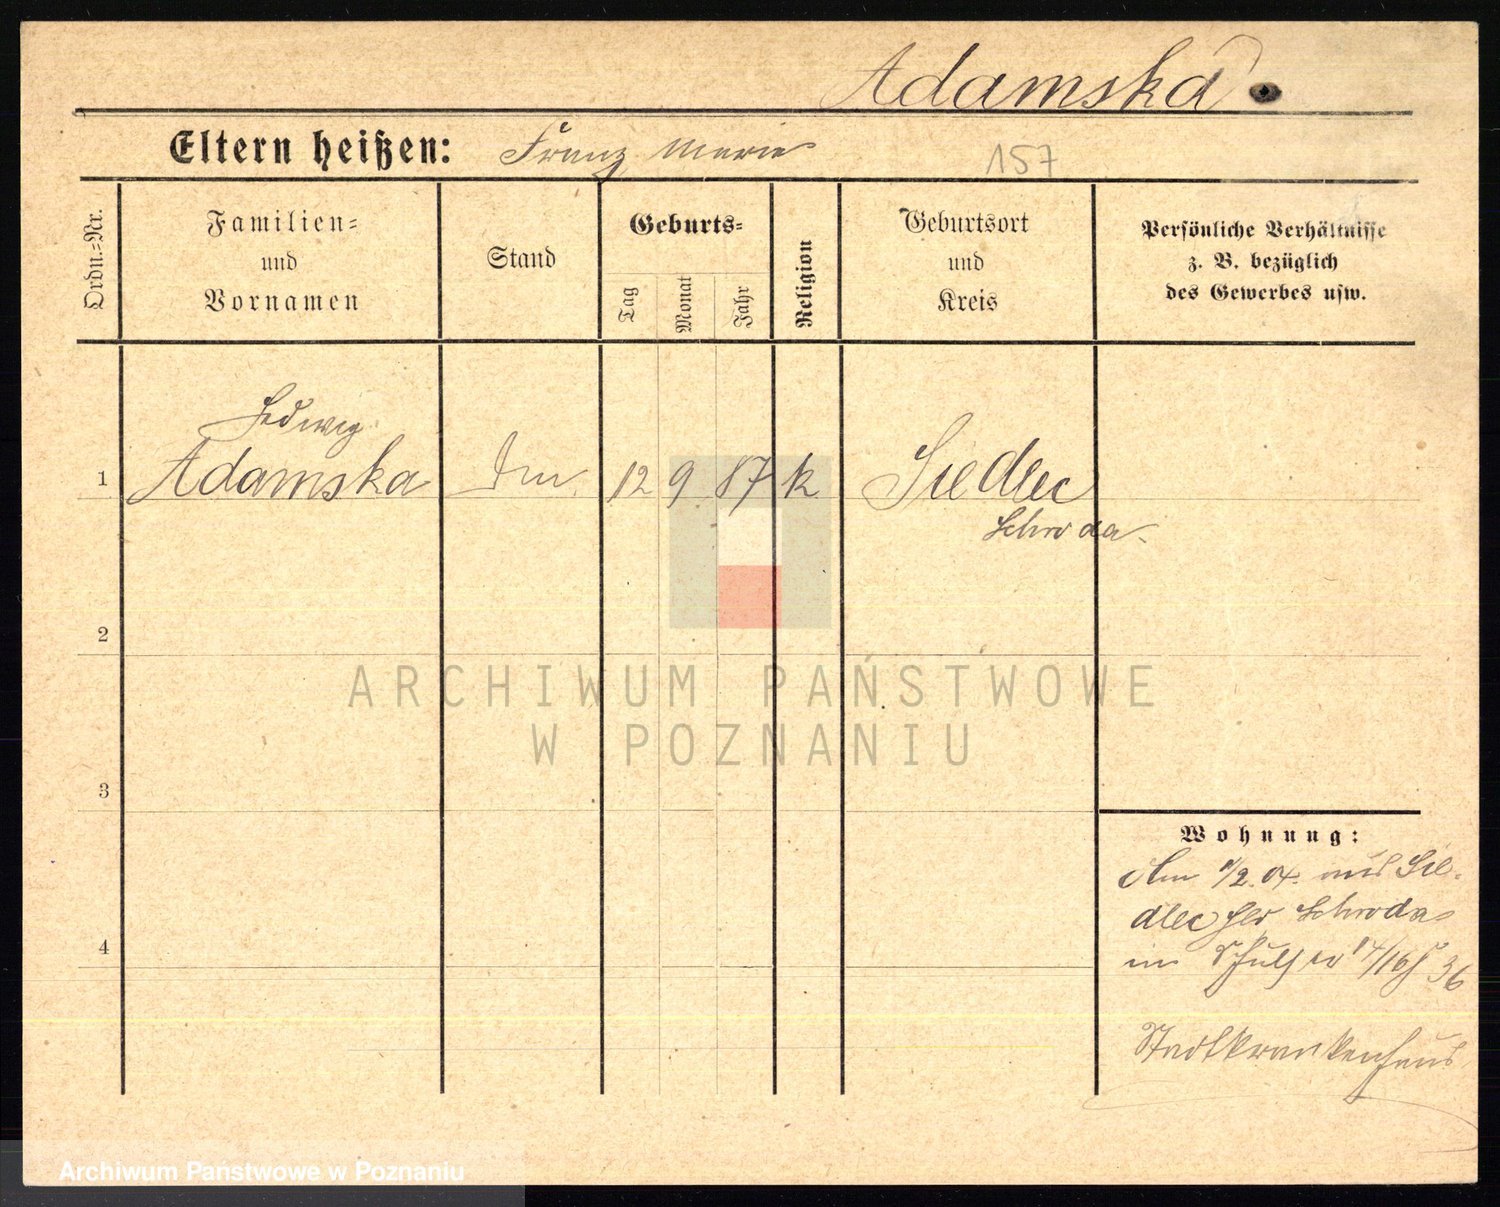 Adamska.
Eltern heißen: Franz Marie
157
Ordn.-Nr.
Familien-
und
Vornamen
Stand
Geburts-
Tag
Monat
Jahr
Religion
Geburtsort
und
Kreis
Persönliche Verhältnisse
z. B. bezüglich
des Gewerbes usw.
Hedwig
1 Adamska 12 9 87 k Siedlec
Schroda.
2
3
4
Wohnung:
Am 1/2. 04. aus Sie-
dlec Schroda
in 14/16 36
Stadtkrankenhaus
ARCHIWUM PAŃSTWOWE
W POZNANIU
Archiwum Państwowe w Poznaniu